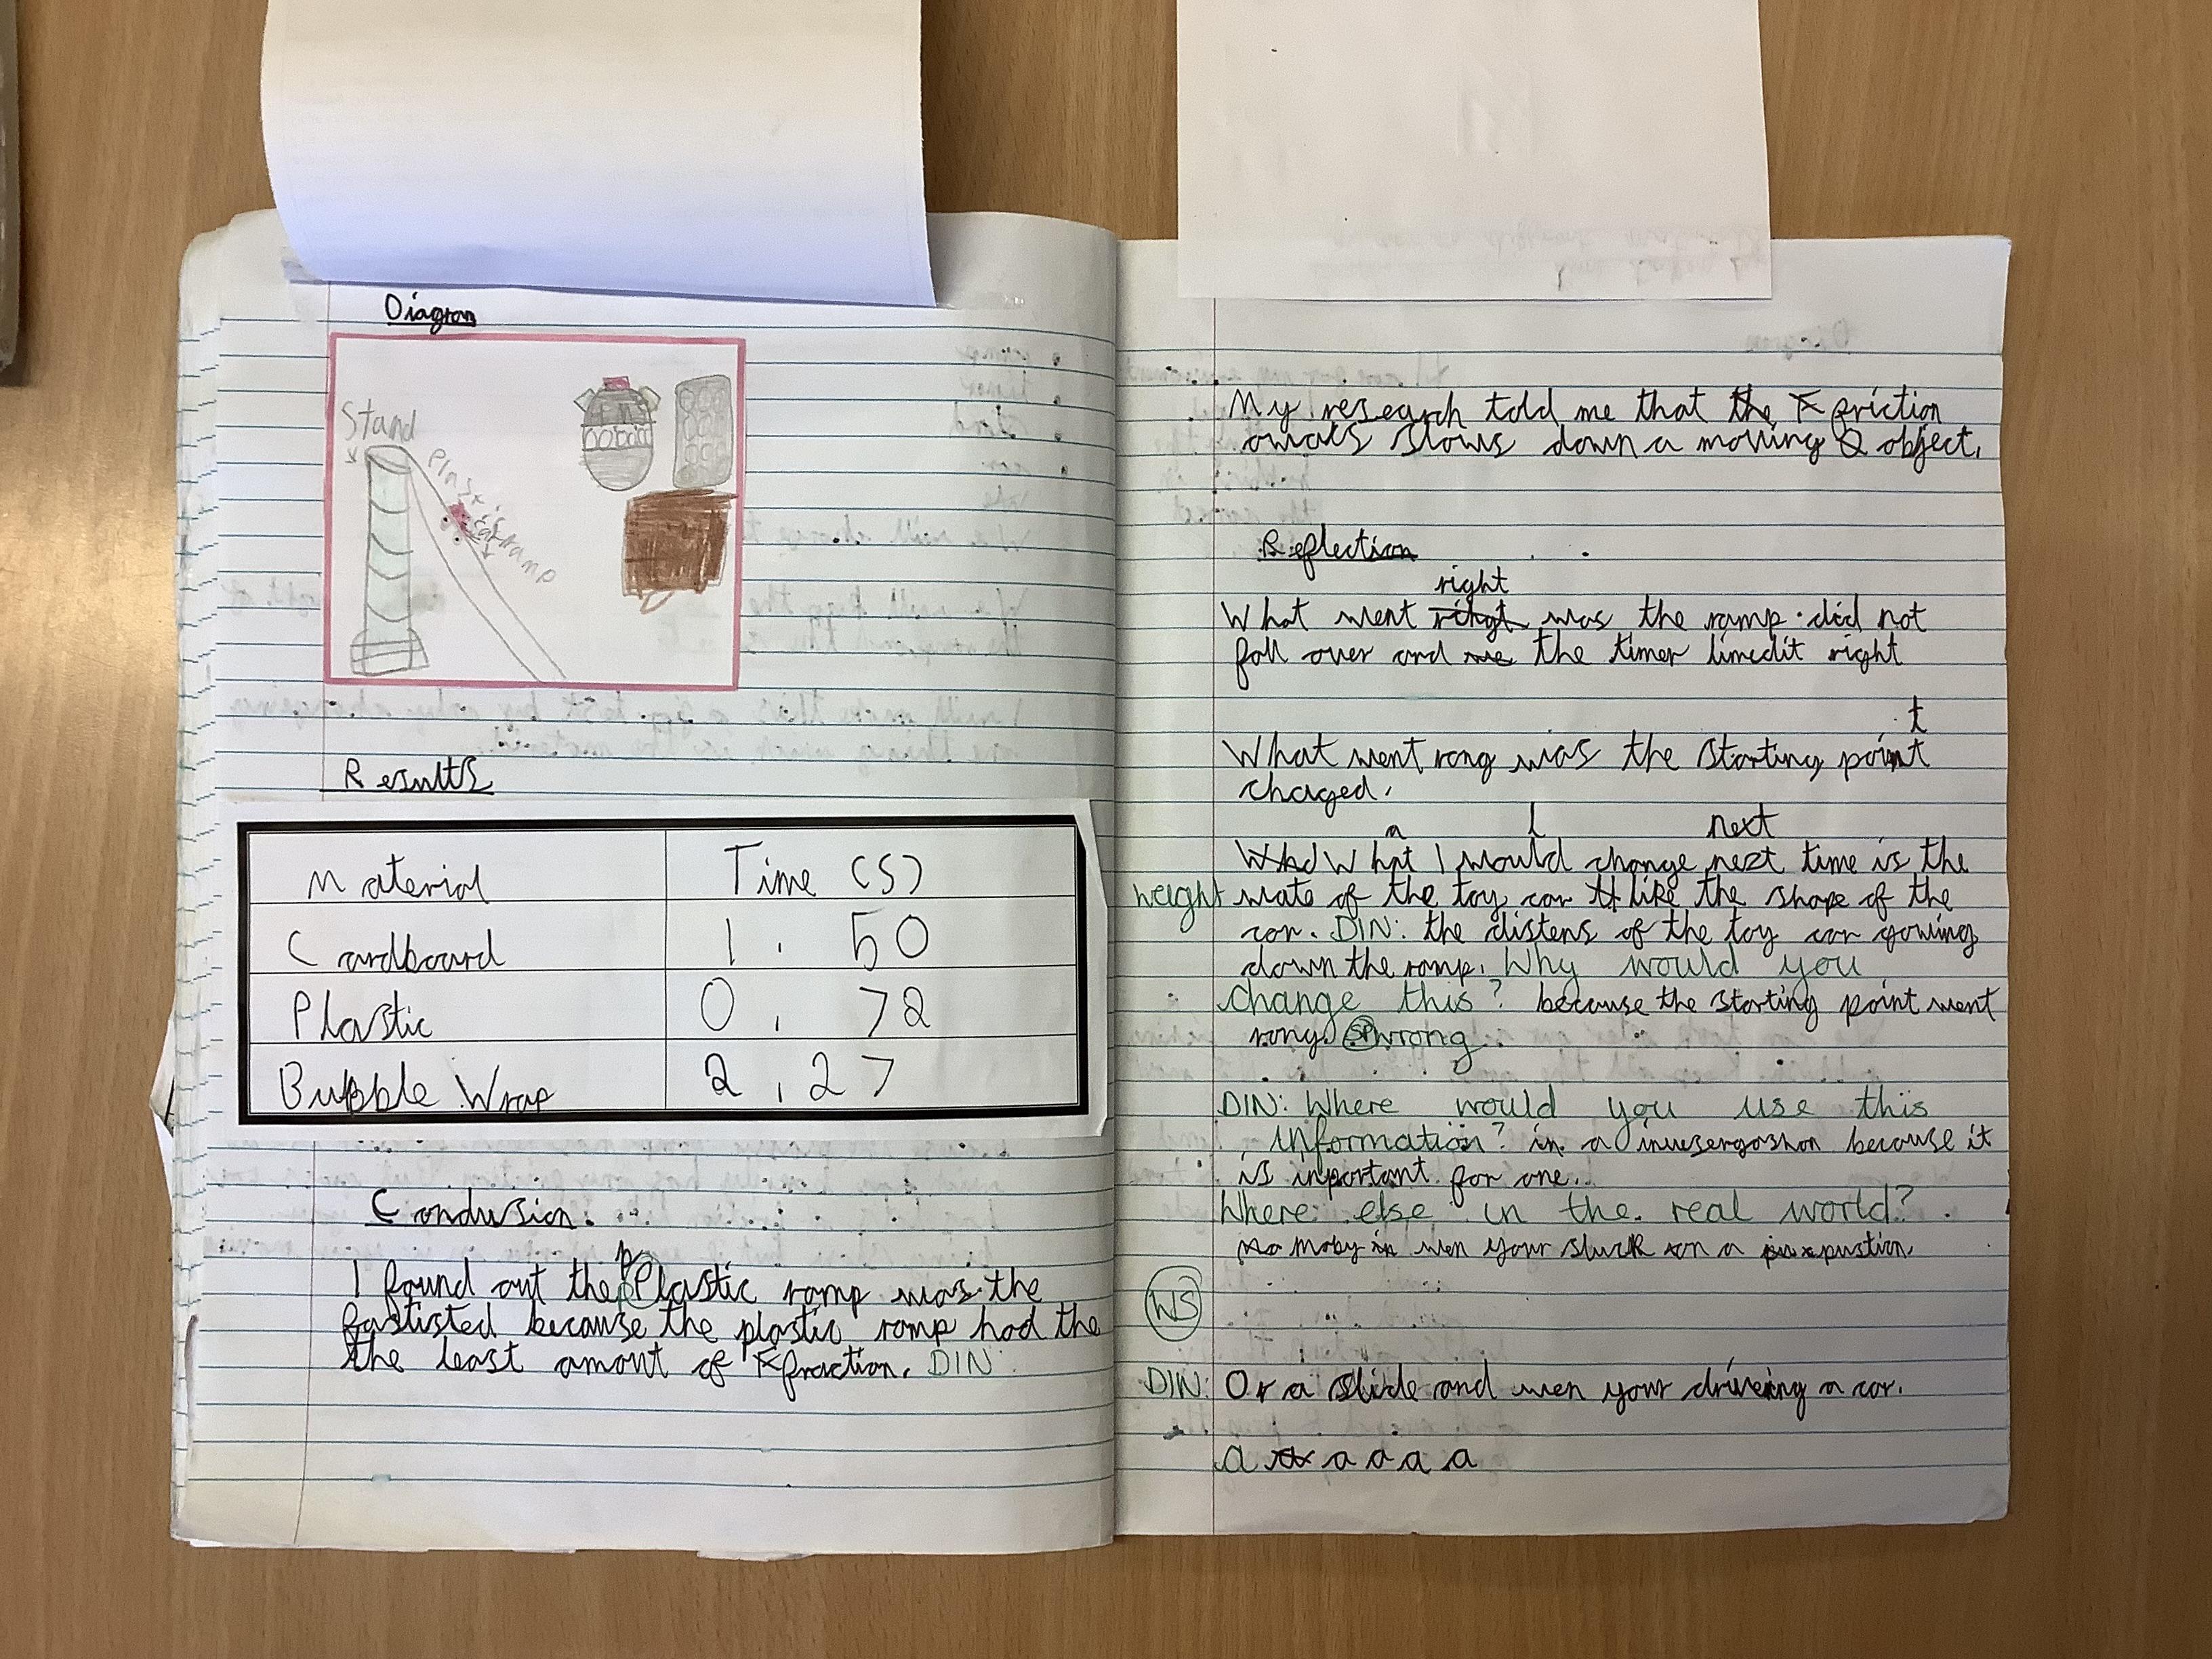 Diagram
Stand
Plastic
car
ramp
Results
Material Time (S)
Cardboard 1.50
Plastic 0.72
Bubble Wrap 2.27
Conclusion.
p
I found out the Plastic ramp was the
fastisted because the plastic ramp had the
the least amount of F fraction. DIN:
My research told me that the F friction
owals slows down a moving O object.
Reflection
right
What went rihgt was the ramp did not
fall over and me the timer limedit right
t
What went rong was the starting point
chaged.
a l next
Whd What I would change nezt time is the
weight wate of the toy car tt like the shape of the
car. DIN: the distens of the toy car gowing
down the ramp. Why would you
change this? because the starting point went
rong. SP wrong
DIN: Where would you use this
information? in a invesergashon because it
is inportant for one.
Where else in the real world?
mo maby in wen your stuck on a pustion.
WS
DIN: Or a slide and wen your driveing a car.
a a a a a a